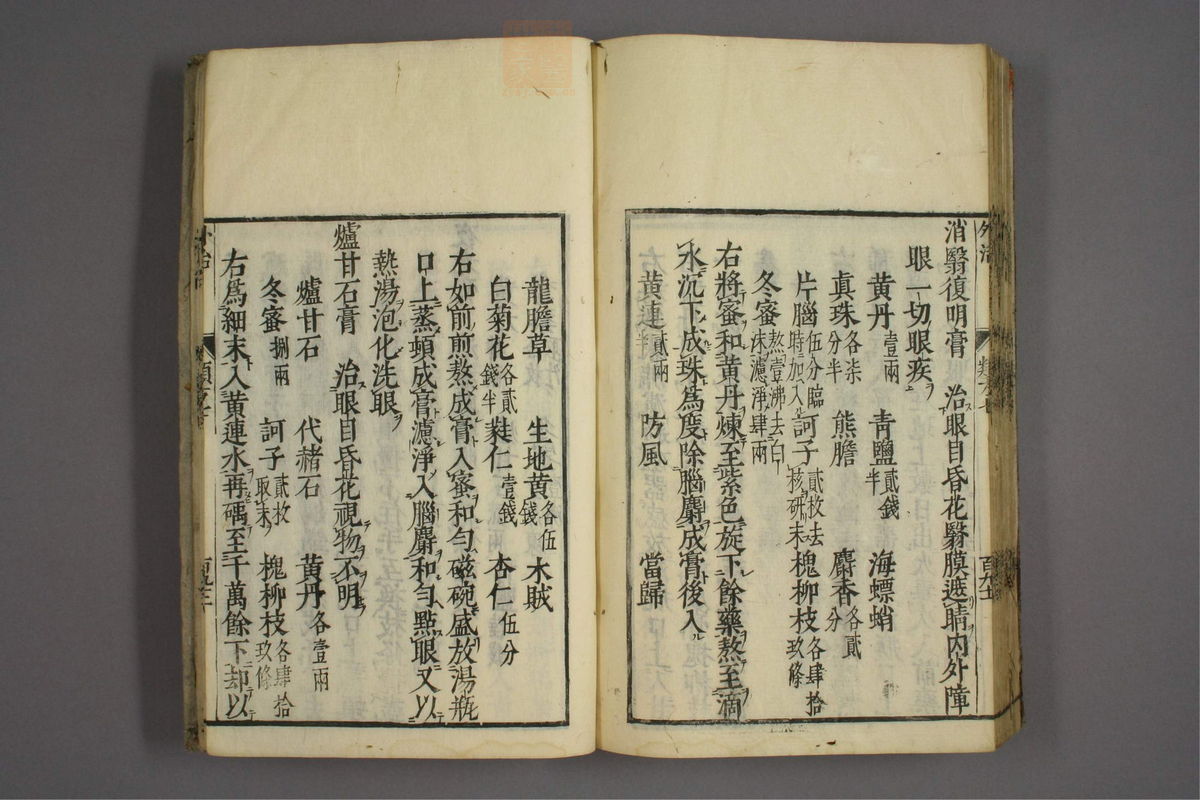 消翳復明膏　治眼目昏花翳膜遮睛内外障
眼一切眼疾
黄丹壹兩　青鹽貳錢半　海螵蛸
真珠各柒分半　熊膽　麝香各貳分
片腦伍分臨時加入　訶子貳枚去核研末　槐柳枝各肆拾玖條
冬蜜熬壹沸去白沫濾淨肆兩
右將蜜和黄丹煉至紫色旋下餘藥熬至滴
水沉下成珠為度除腦麝成膏後入
右黄連貳兩半　防風　當歸
龍膽草　生地黄各伍錢　木賊
白菊花各貳錢半　蕤仁壹錢　杏仁伍分
右如前煎熬成膏入蜜和勻磁碗盛放湯瓶
口上蒸頓成膏濾淨入腦麝和勻點眼又以
熱湯泡化洗眼
爐甘石膏　治眼目昏花視物不明
爐甘石　代赭石　黄丹各壹兩
冬蜜捌兩　訶子貳枚取末　槐柳枝各肆拾玖條
右為細末入黄連水再碯至千萬餘下却以